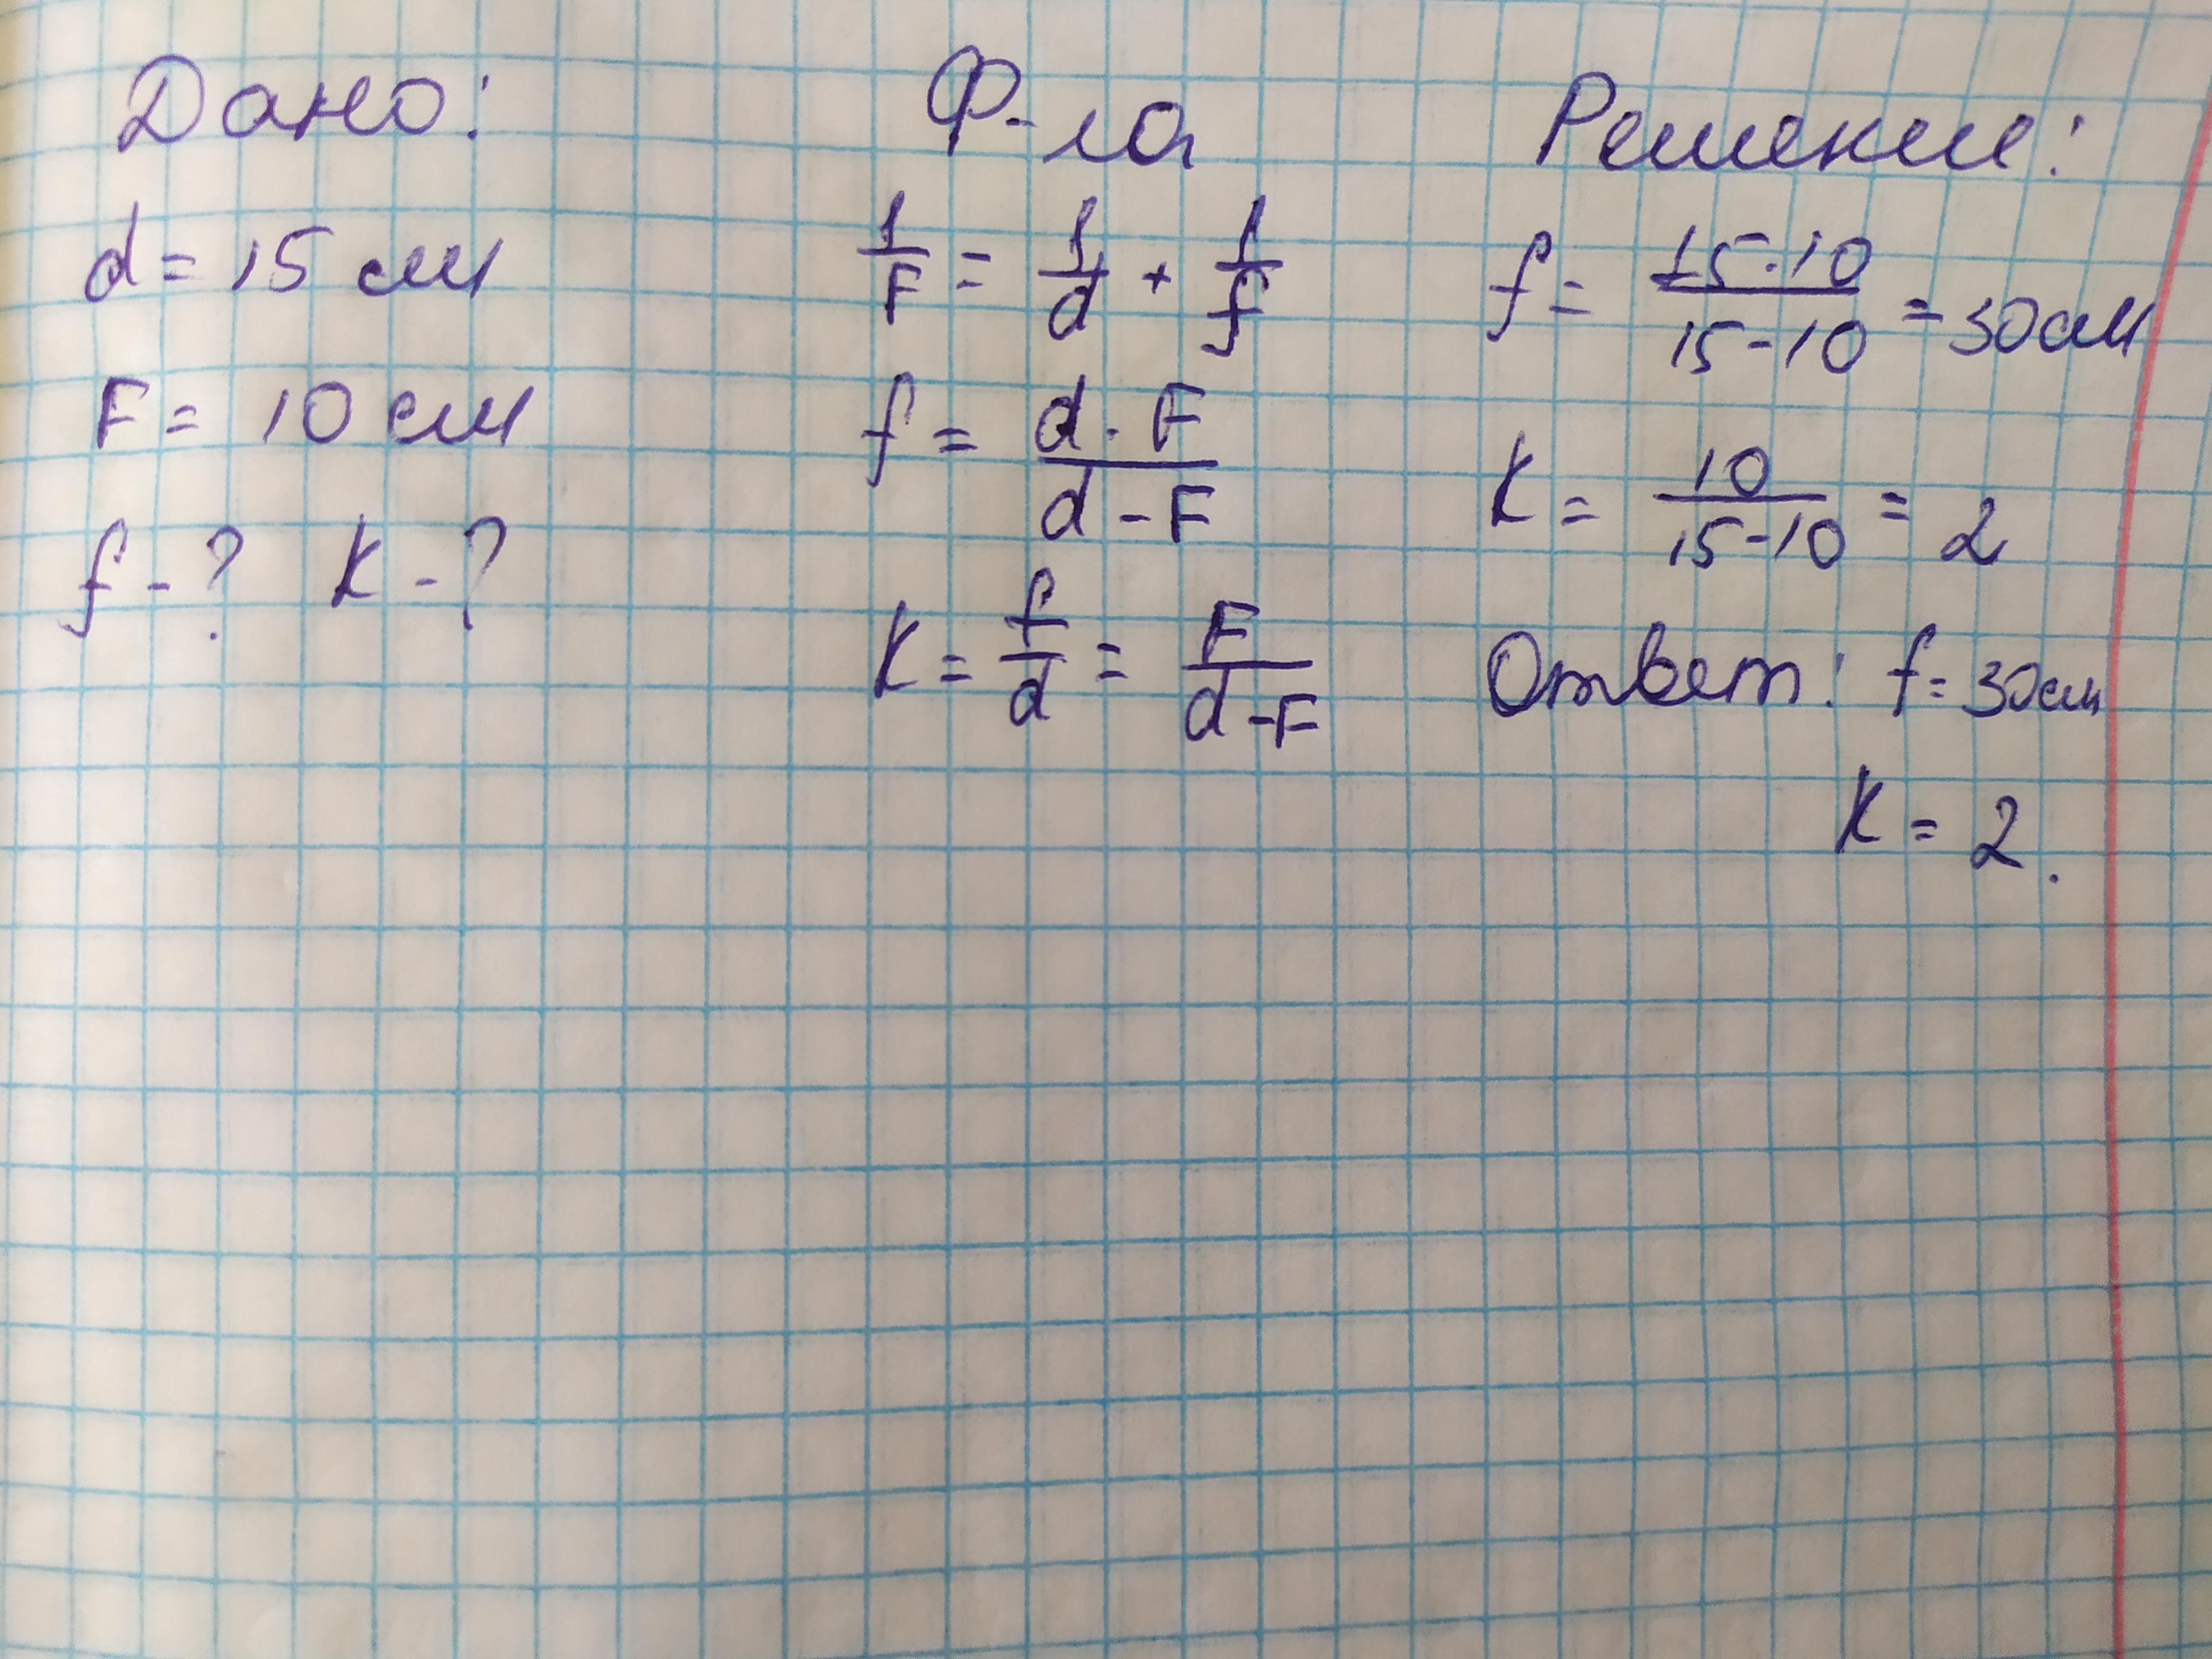 Дано:
d = 15 см
F = 10 см
f - ? K - ?
Ф-ла
1/F = 1/d + 1/f
f = d · F / d - F
K = f/d = F / d - F
Решение:
f = 15 · 10 / 15 - 10 = 30 см
K = 10 / 15 - 10 = 2
Ответ: f = 30 см
K = 2.